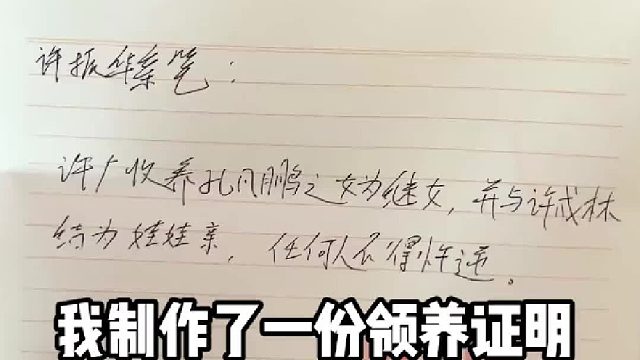 许振华亲笔:
许广收养孔凡鹏之女为继女,并与许成林
结为娃娃亲,任何人不得忤逆。
我制作了一份领养证明